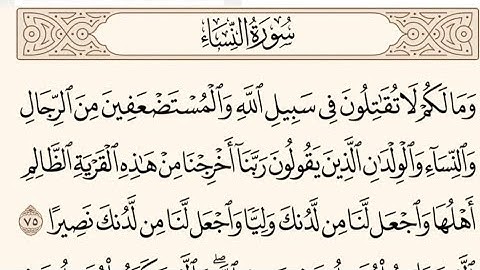 سُورَةُ النِّسَاءِ
وَمَا لَكُمْ لَا تُقَٰتِلُونَ فِى سَبِيلِ ٱللَّهِ وَٱلْمُسْتَضْعَفِينَ مِنَ ٱلرِّجَالِ
وَٱلنِّسَآءِ وَٱلْوِلْدَٰنِ ٱلَّذِينَ يَقُولُونَ رَبَّنَآ أَخْرِجْنَا مِنْ هَٰذِهِ ٱلْقَرْيَةِ ٱلظَّالِمِ
أَهْلُهَا وَٱجْعَل لَّنَا مِن لَّدُنكَ وَلِيًّا وَٱجْعَل لَّنَا مِن لَّدُنكَ نَصِيرًا ٧٥